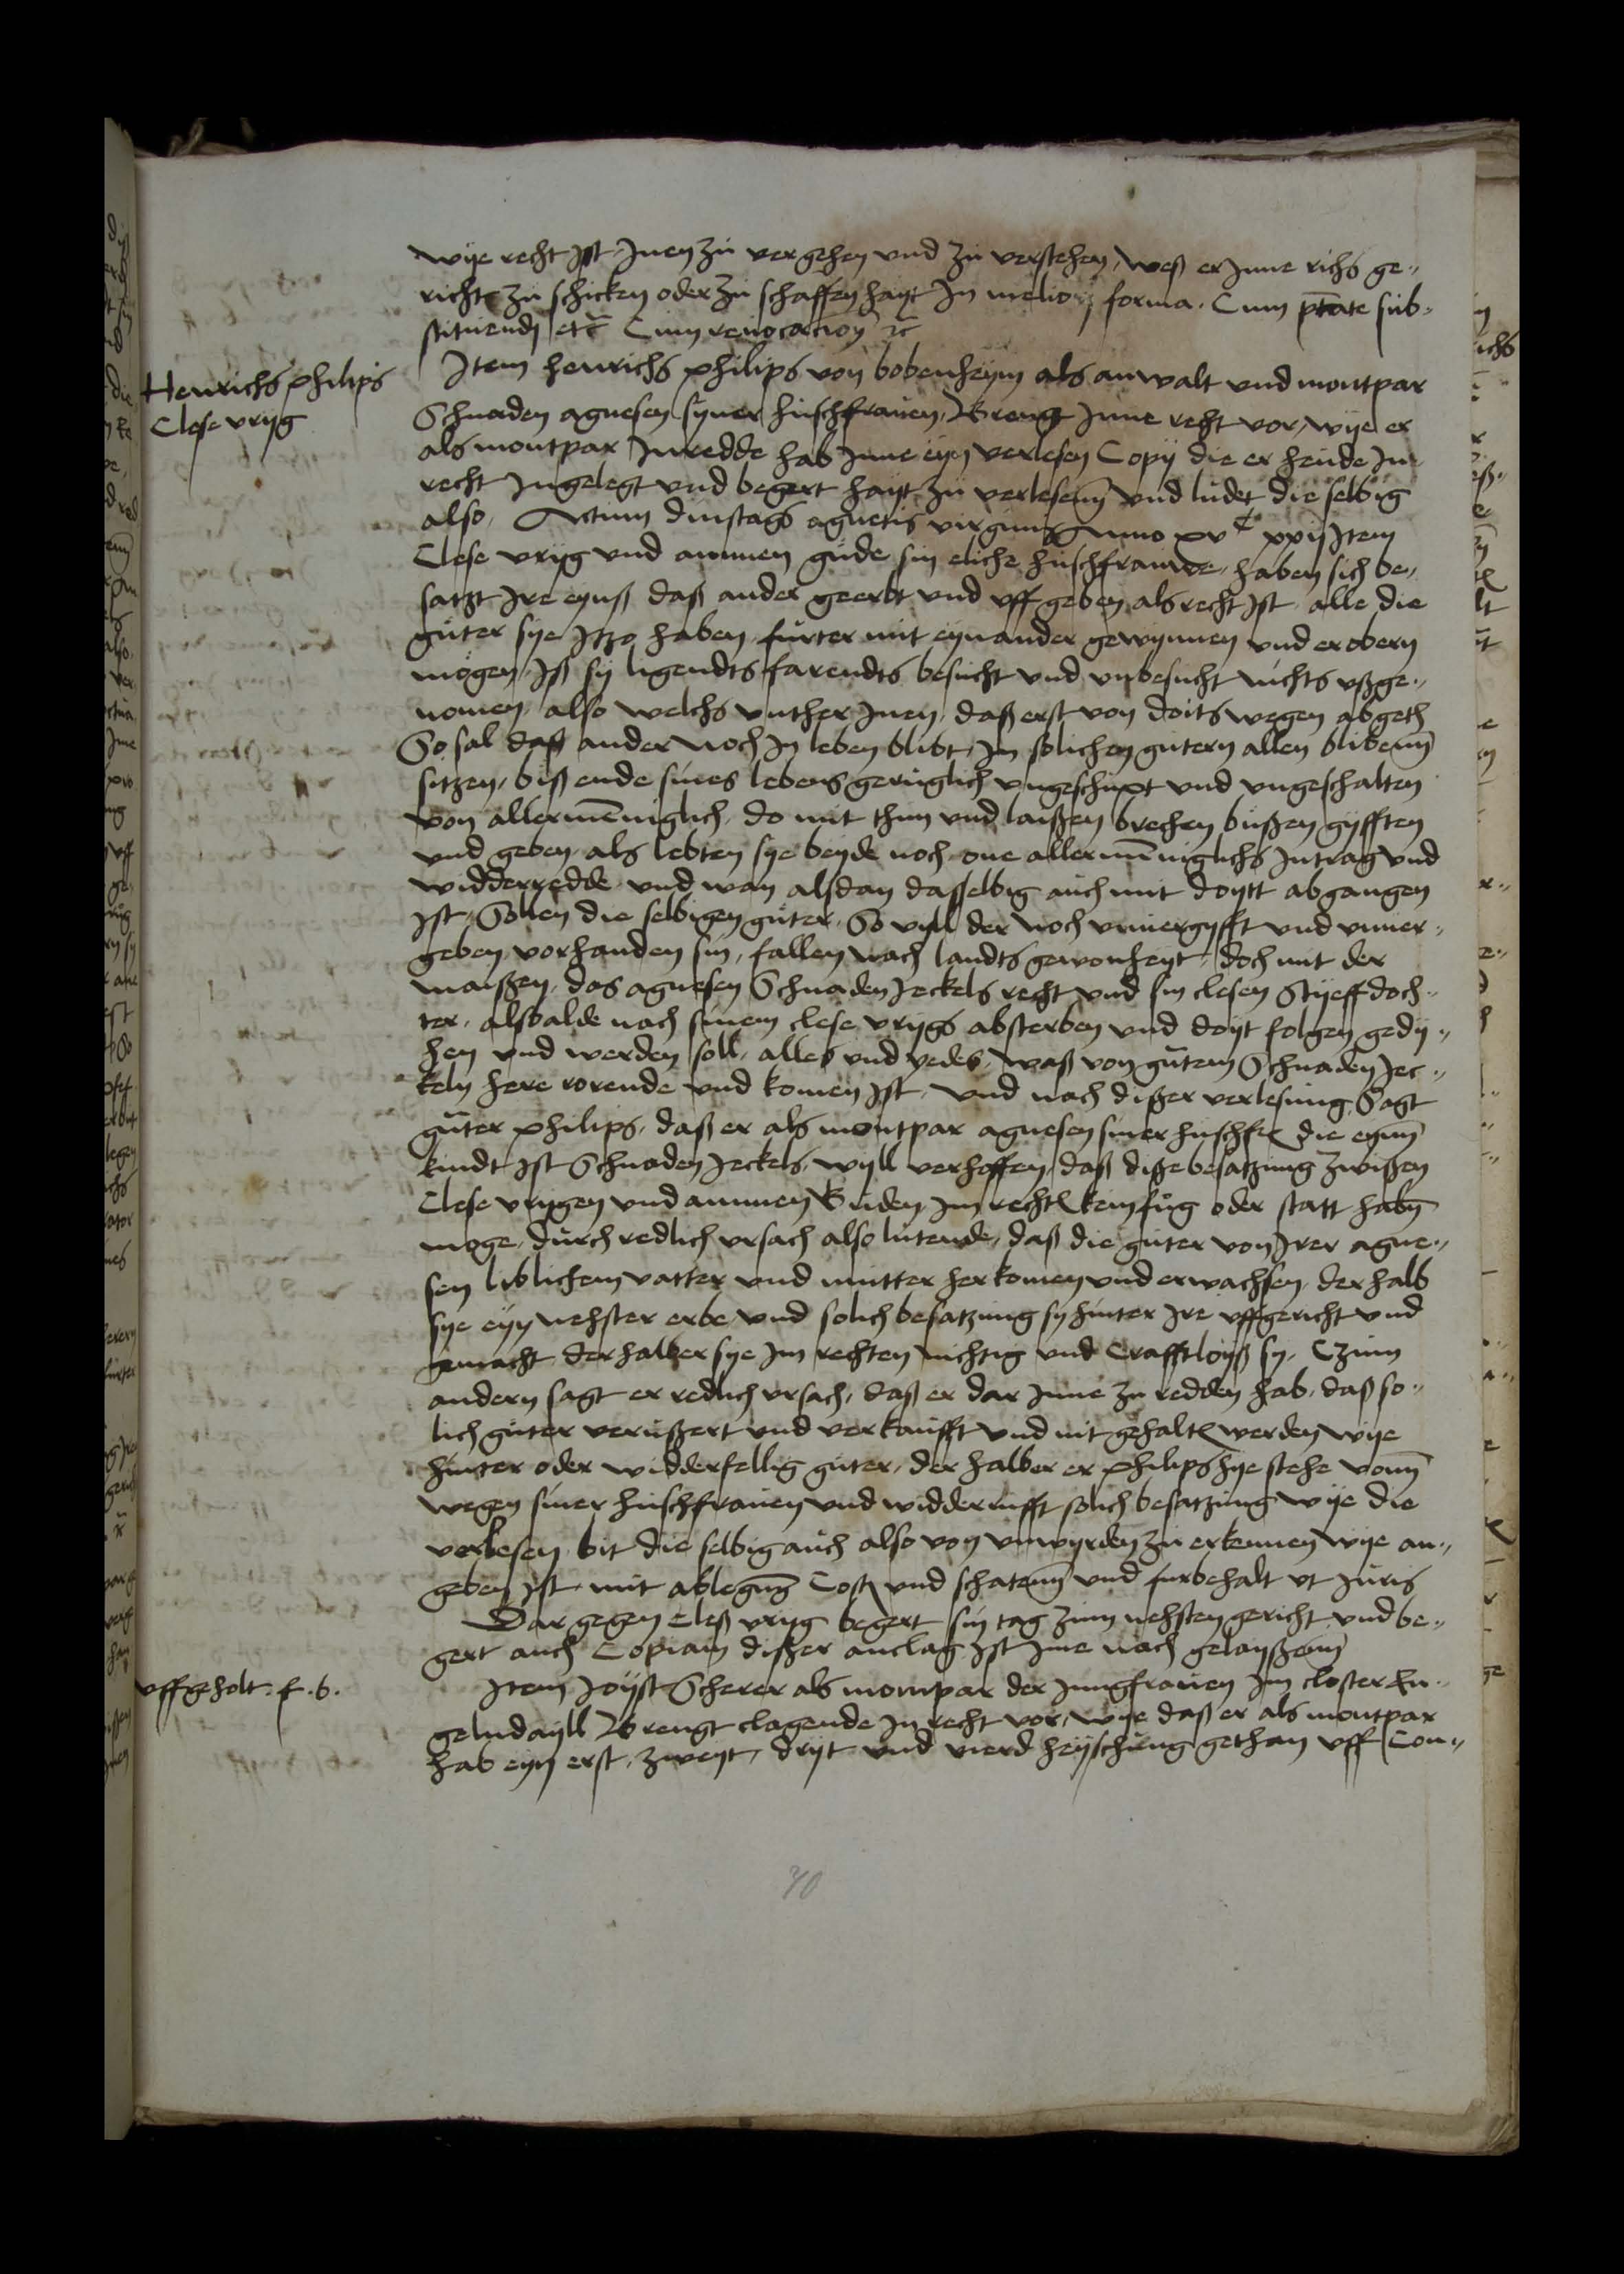 wije recht Jst Jnen zu vergehen vnd zu verstehen, weß er Jnne richs ge„
richte zu schicken oder zu schaffen hayt Jn meliorj forma. Cum ptāte sub„
stituendj etc̄ Cum reuocacion̄ ꝛc̄
Henrichs philips
Clese vrijg
Jtem henrichs philips von bobenheym als anwalt vnd montpar
Schnaden agnesen syner hußfrauen, Brengt Jnne recht vor, wije er
als montpar Jnredde hab Jnne eyn verlesen Copij die er heude Jn
recht Jngelegt vnd begert hayt zu verlesenn̄ vnd ludet die selbig
also, Actum dinstags agnetis virginis Anno xvᶜ xxij Jtem
Clese vrijg vnd annnen gude sin eliche hußfrauwe, haben sich be„
satzt Jre eynß daß ander geerbt vnd vff geben als recht Jst alle die
guter sije Jtzo haben furter mit eynander gewynnen vnd erobern
mogen, Jß sy ligendts farendts besucht vnd vnbesucht nichts vßge„
nomen, also welchs vnther Jnen, daß erst von doits wegen abgeth
So sal daß ander noch Jn leben blibt, Jn solichen gutern allen blibenn̄
sitzen, biß ende sines lebens geruglich vngeschupt vnd vngeschalten
von allermē̄niglich, do mit thun vnd laißen brechen bußen gyfften
vnd geben, als lebten sije beyde noch one allermē̄niglichs Jntrag vnd
widderredde vnd wan alsdan dasselbig auch mit doytt abgangen
Jst, Sollen die selbigen guter, So vyll der noch vnuergyfft vnd vnuer„
geben vorhanden sin, fallen nach landts gewonheyt, doch mit der
maißen, das agnesen Schnaden Jeckels recht vnd sin clesen Styeff doch„
ter, alsbalde nach sinem clese vrijgs absterben vnd doyt folgen gedy„
hen vnd werden soll, alles vnd yedes, waß von gutern Schnaden Jec„
keln here rorende vnd komen Jst, Vnd nach dißer verlesung, Sagt
guter philips, daß er als montpar agnesen siner hußfr die eynn̄
kindt Jst Schnaden Jeckels, wyll verhoffen, daß diße besatzung zwißen
Clese vrijgen vnd annnen Guden Jm rechtꝫ kein fug oder statt habn̄
moge, durch redlich vrsach also lutende, daß die guter von Jrer agne„
sen liblichem vatter vnd mutter her komen vnd erwachsen, derhalb
sije eyn nehster erbe, vnd solich besatzung sy hinter Jre vffgericht vnd
gemacht derhalber sije Jm rechten nichtig vnd Crafftloyß sy, Czum
andern sagt er redlich vrsach, daß er dar Jnne zu redden hab, daß so„
lich guter verußert vnd verkaufft vnd nit gehaltꝫ werden wije
hinter oder widderfellig guter, der halber er philips hye stehe vonn̄
wegen siner hußfrauen vnd widderrufft solich besatzung wije die
verlesen, bit die selbig auch also von vnwyrden zu erkennen wije an„
geben Jst, mit ablegung Cost vnd schatenn̄ vnd furbehalt vt Juris
Dar gegen Cleß vrijg begert sin tag zum nehsten gericht vnd be„
gert auch Copiam dißer anclag Jst Jme nach gelayßenn̄
vffgeholt. f. 6.
Jtem Joyst Scherer als montpar der Jungfrauen Jm closter En„
gelndayll Brengt clagende Jn recht vor, wije daß er als montpar
hab eyn erst, zweyt, dryt vnd vierd heyschung gethan vff Con„
40